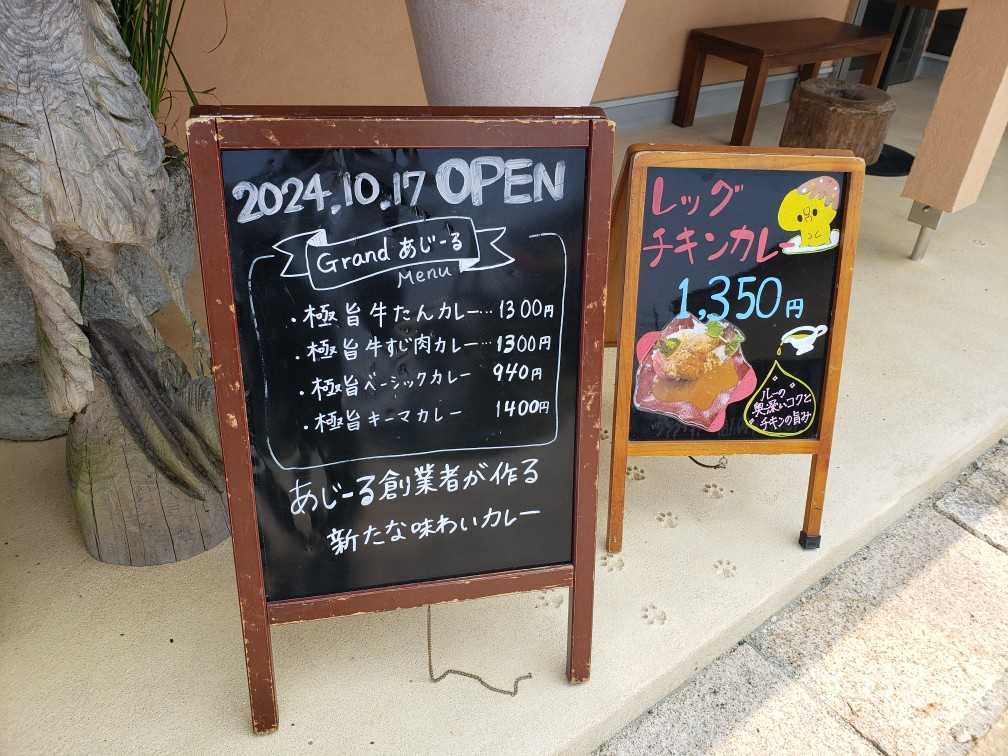 2024.10.17 OPEN
Grand あじーる
Menu
・極旨牛たんカレー…1300円
・極旨牛すじ肉カレー…1300円
・極旨ベーシックカレー 940円
・極旨キーマカレー 1400円
あじーる創業者が作る
新たな味わいカレー
レッグ
チキンカレー
1,350円
ルーの
奥深いコクと
チキンの旨み